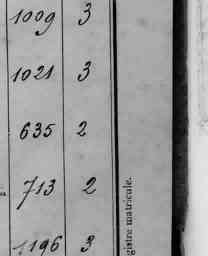 1009 3
1021 3
635 2
713 2
1196 3
gistre matricule.